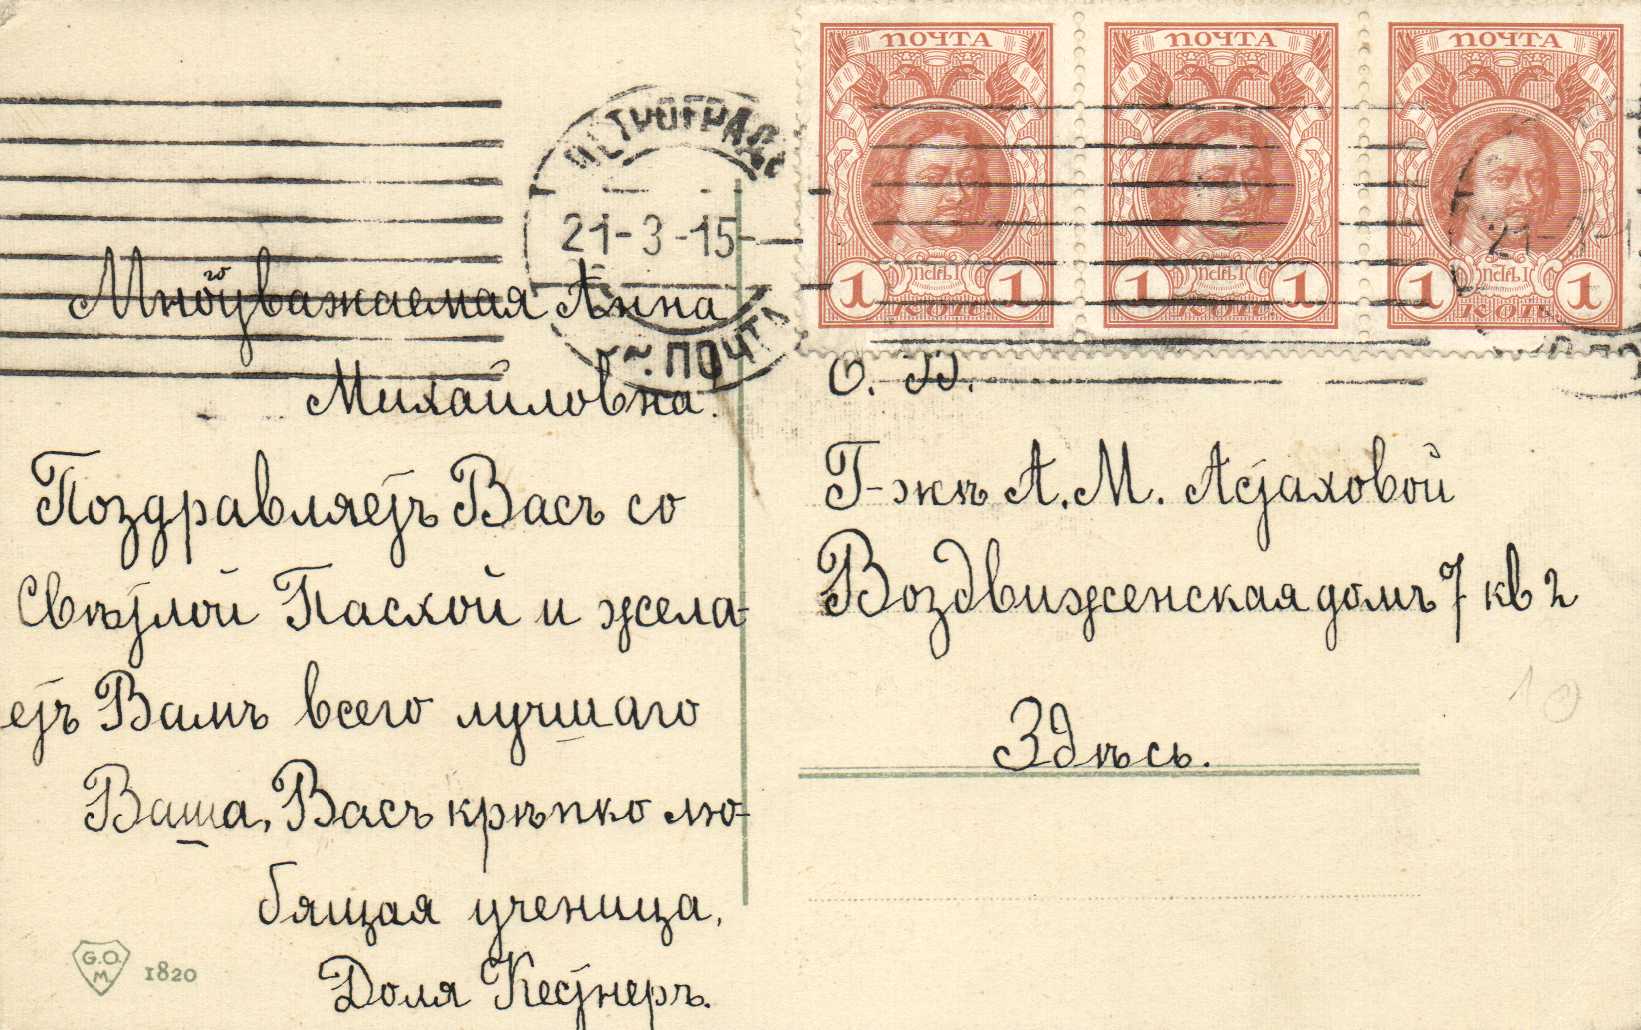 ПОЧТА ПОЧТА ПОЧТА
ПЕТРОГРАДЪ
21-3-15
ПОЧТА
1 1 1 1 1 1
КОП. КОП. КОП.
Многоуважаемая Анна
Михайловна.
Поздравляетъ Васъ со
Свѣтлой Пасхой и жела-
етъ Вамъ всего лучшаго
Ваша, Васъ крѣпко лю-
бящая ученица,
Доля Кестнеръ.
G.O.
M.
1820
Г-жѣ А. М. Астаховой
Воздвиженская домъ 7 кв 2
Здѣсь.
10